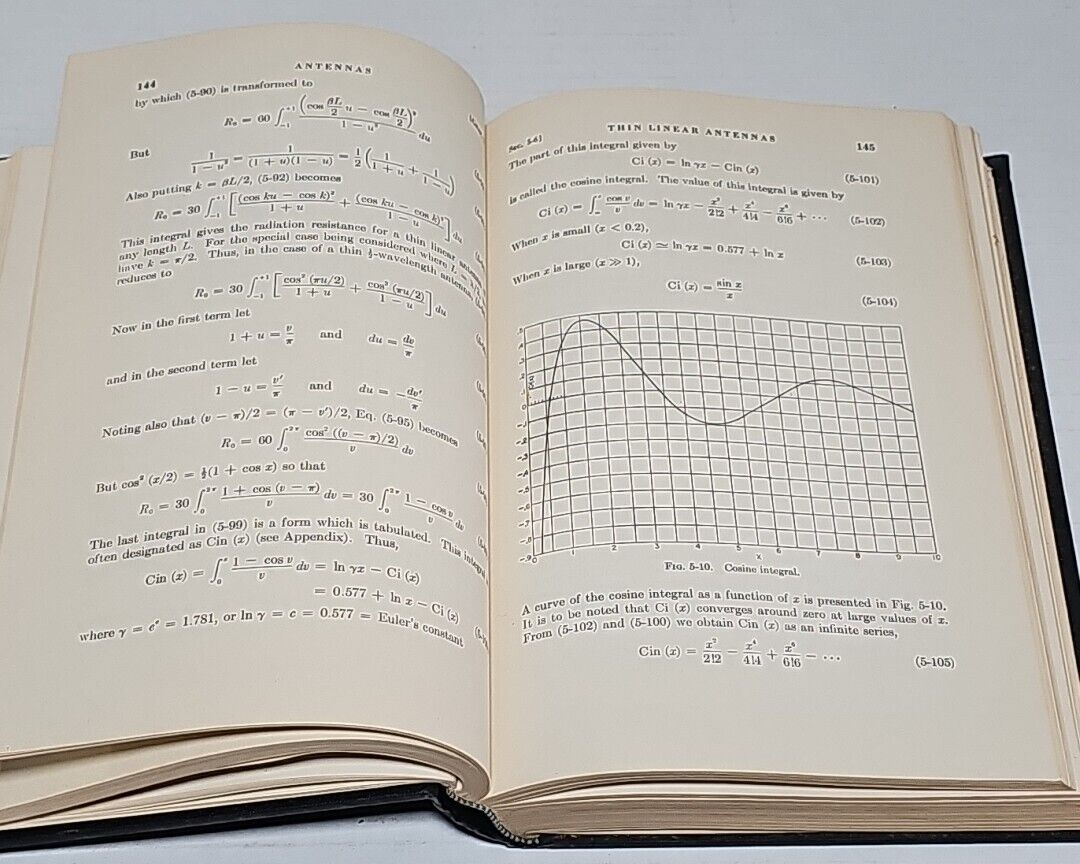 144
ANTENNAS
by which (5-90) is transformed to
R₀ = 60 ∫₋₁⁺¹ (cos βL/2 u − cos βL/2)² / 1 − u² du
But
1/1 − u² = 1/(1 + u)(1 − u) = 1/2 (1/1 + u + 1/1 − u)
Also putting k = βL/2, (5-92) becomes
R₀ = 30 ∫₋₁⁺¹ [(cos ku − cos k)²/1 + u + (cos ku − cos k)²/1 − u] du
This integral gives the radiation resistance for a thin linear
any length L. For the special case being considered where L =
have k = π/2. Thus, in the case of a thin ½-wavelength antenna,
reduces to
R₀ = 30 ∫₋₁⁺¹ [cos² (πu/2)/1 + u + cos² (πu/2)/1 − u] du
Now in the first term let
1 + u = v/π and du = dv/π
and in the second term let
1 − u = v′/π and du = − dv′/π
Noting also that (v − π)/2 = (π − v′)/2, Eq. (5-95) becomes
R₀ = 60 ∫₀²π cos² ((v − π)/2)/v dv
But cos² (x/2) = ½(1 + cos x) so that
R₀ = 30 ∫₀²π 1 + cos (v − π)/v dv = 30 ∫₀²π 1 − cos v/v dv
The last integral in (5-99) is a form which is tabulated. This integral
often designated as Cin (x) (see Appendix). Thus,
Cin (x) = ∫₀ˣ 1 − cos v/v dv = ln γx − Ci (x)
= 0.577 + ln x − Ci (x)
where γ = eᶜ = 1.781, or ln γ = c = 0.577 = Euler's constant
Sec. 5-6]
THIN LINEAR ANTENNAS
145
The part of this integral given by
Ci (x) = ln γx − Cin (x) (5-101)
is called the cosine integral. The value of this integral is given by
Ci (x) = ∫ cos v/v dv = ln γx − x²/2!2 + x⁴/4!4 − x⁶/6!6 + ··· (5-102)
When x is small (x < 0.2),
Ci (x) ≃ ln γx = 0.577 + ln x (5-103)
When x is large (x ≫ 1),
Ci (x) = sin x/x (5-104)
.5
.4
.3
.2
.1
0
-.1
-.2
-.3
-.4
-.5
-.6
-.7
-.8
-.9
Ci(x)
0 1 2 3 4 5 6 7 8 9 10
X
Fig. 5-10. Cosine integral.
A curve of the cosine integral as a function of x is presented in Fig. 5-10.
It is to be noted that Ci (x) converges around zero at large values of x.
From (5-102) and (5-100) we obtain Cin (x) as an infinite series,
Cin (x) = x²/2!2 − x⁴/4!4 + x⁶/6!6 − ··· (5-105)